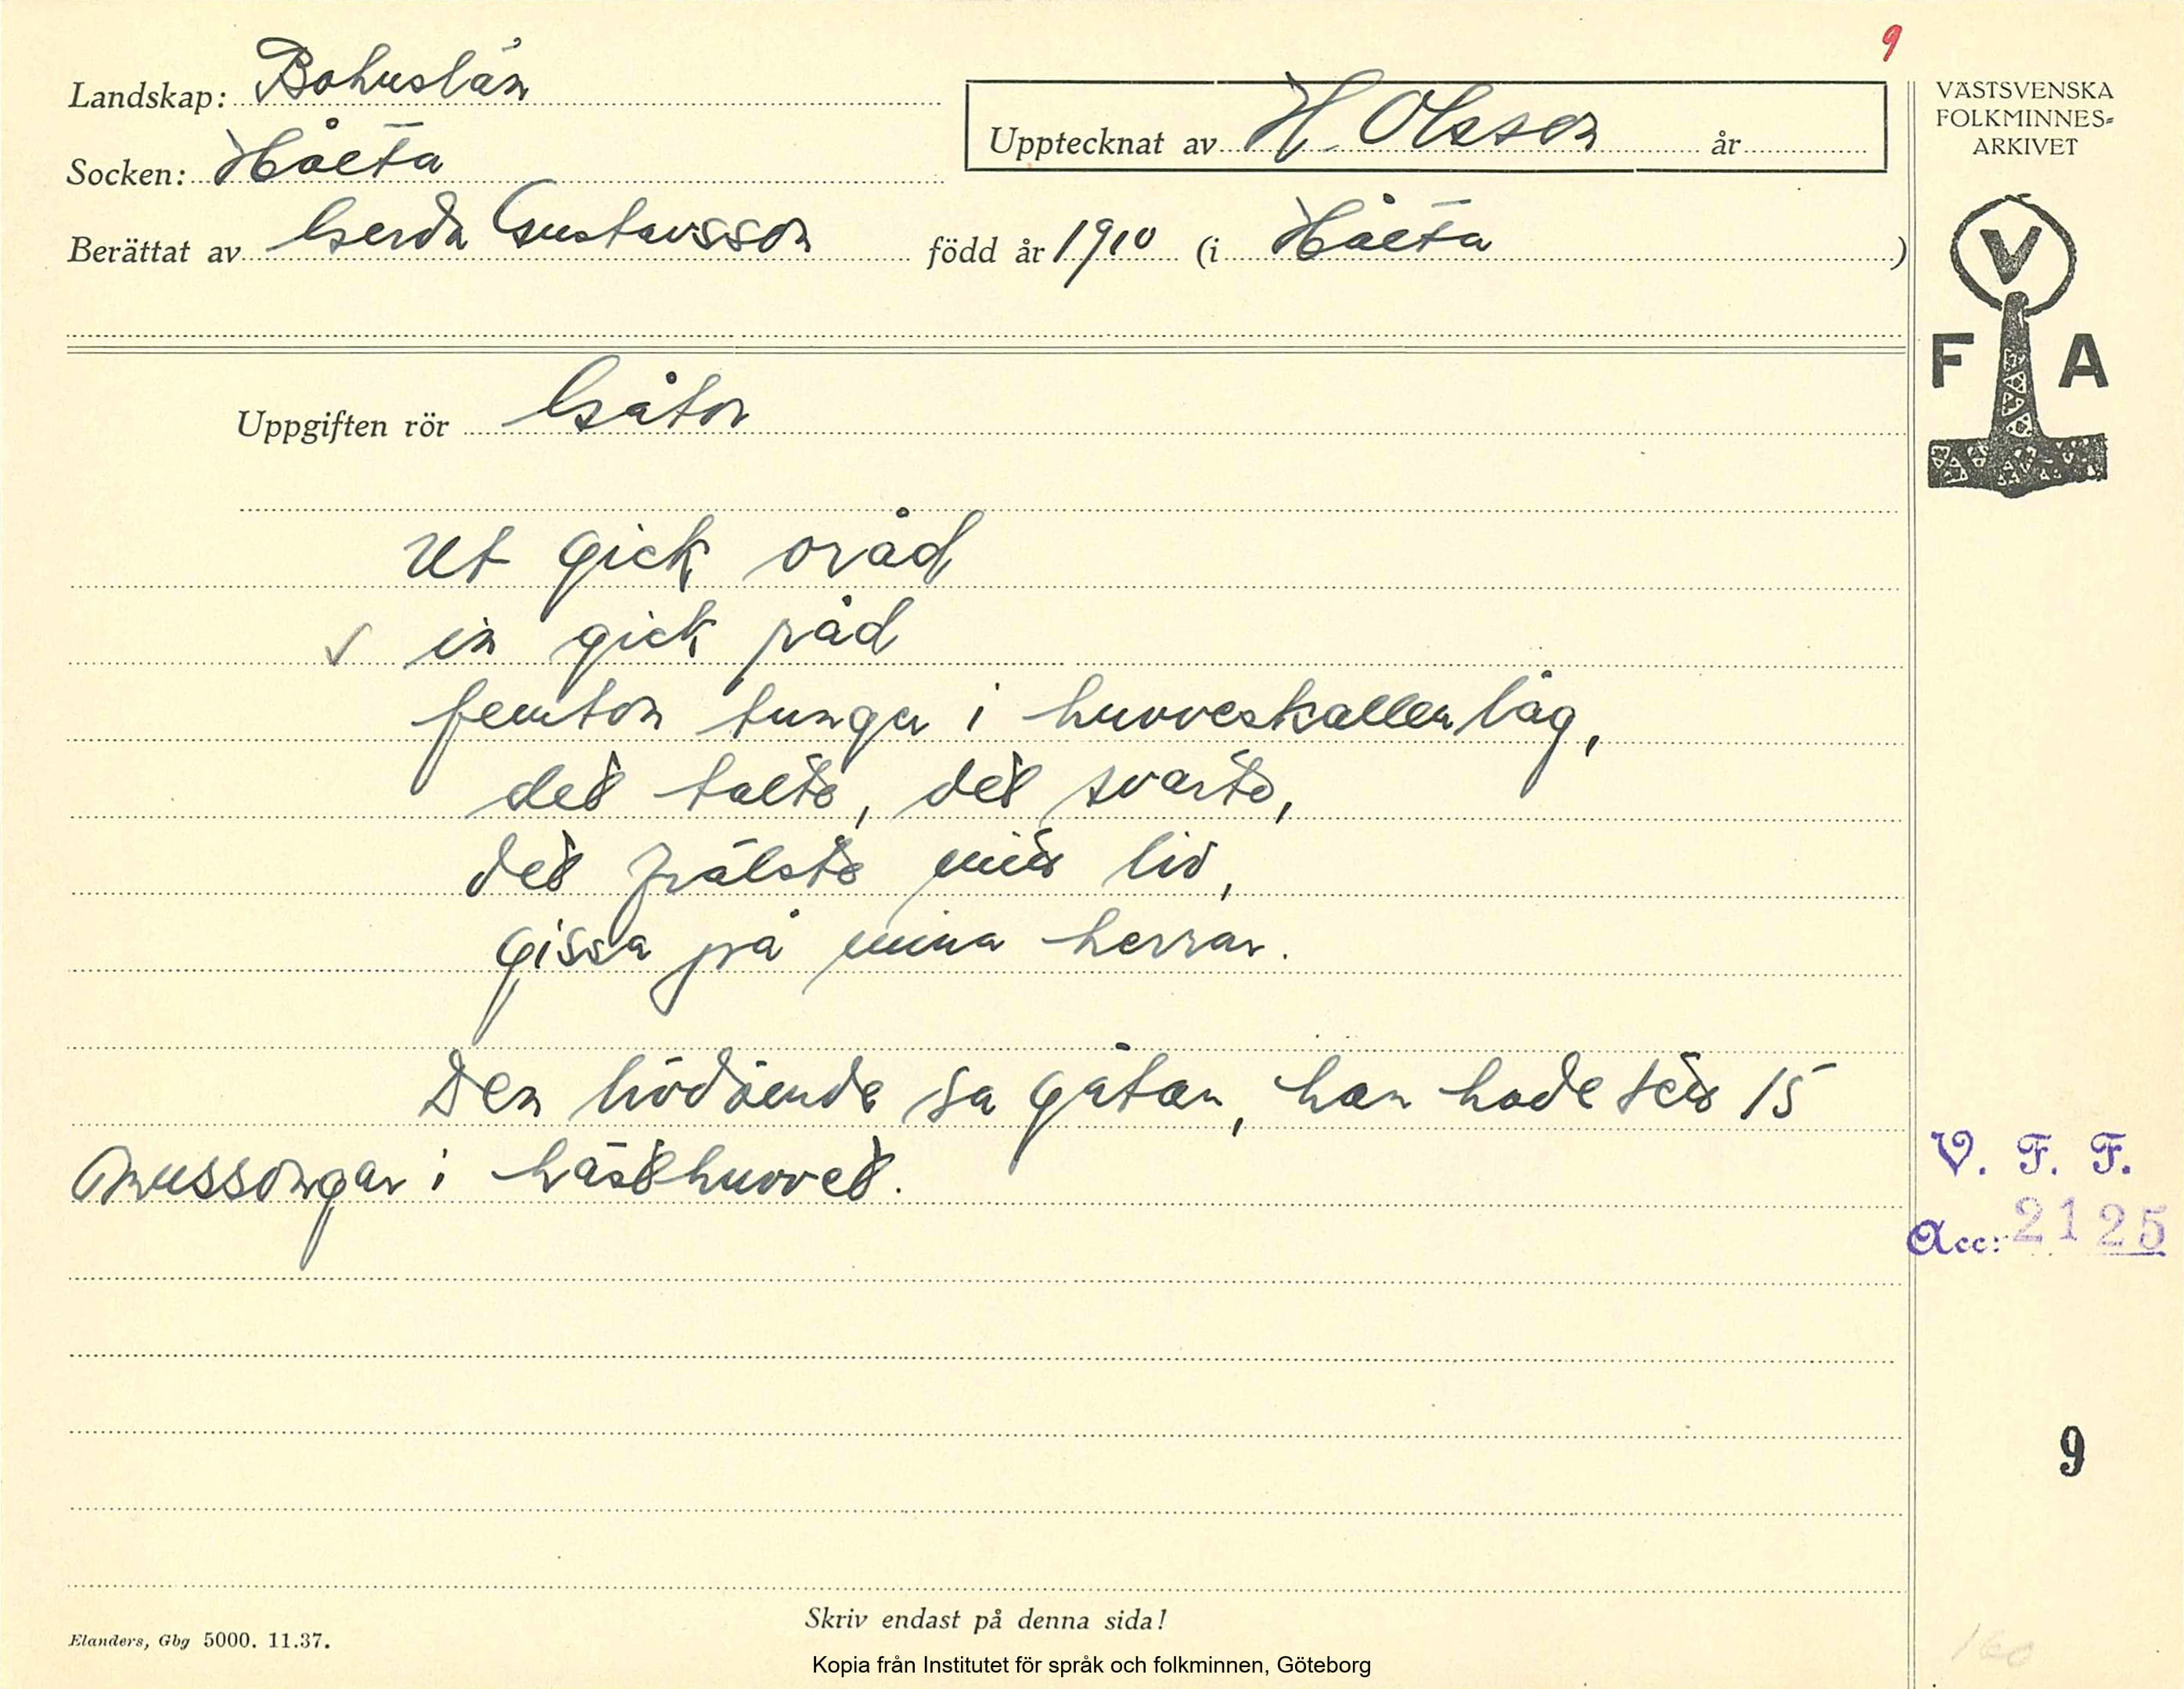 9
Landskap: Bohuslän
Socken: Håleta
Upptecknat av H. Olsson år
VÄSTSVENSKA
FOLKMINNES-
ARKIVET
Berättat av Gerda Gustavsson född år 1910 (i Håleta)
V
F A
Uppgiften rör Gåtor
Ut gick oråd
✓ in gick råd
femton tunger i huvveskallen låg,
det talte, det svarte,
det frälste mit liv,
gissa på mina herrar.
Den livdömde sa gåtan, han hade sett 15
mussongar i hästhuvvet.
V. F. F.
Acc: 2125
9
Skriv endast på denna sida!
Elanders, Gbg 5000. 11.37.
160
Kopia från Institutet för språk och folkminnen, Göteborg